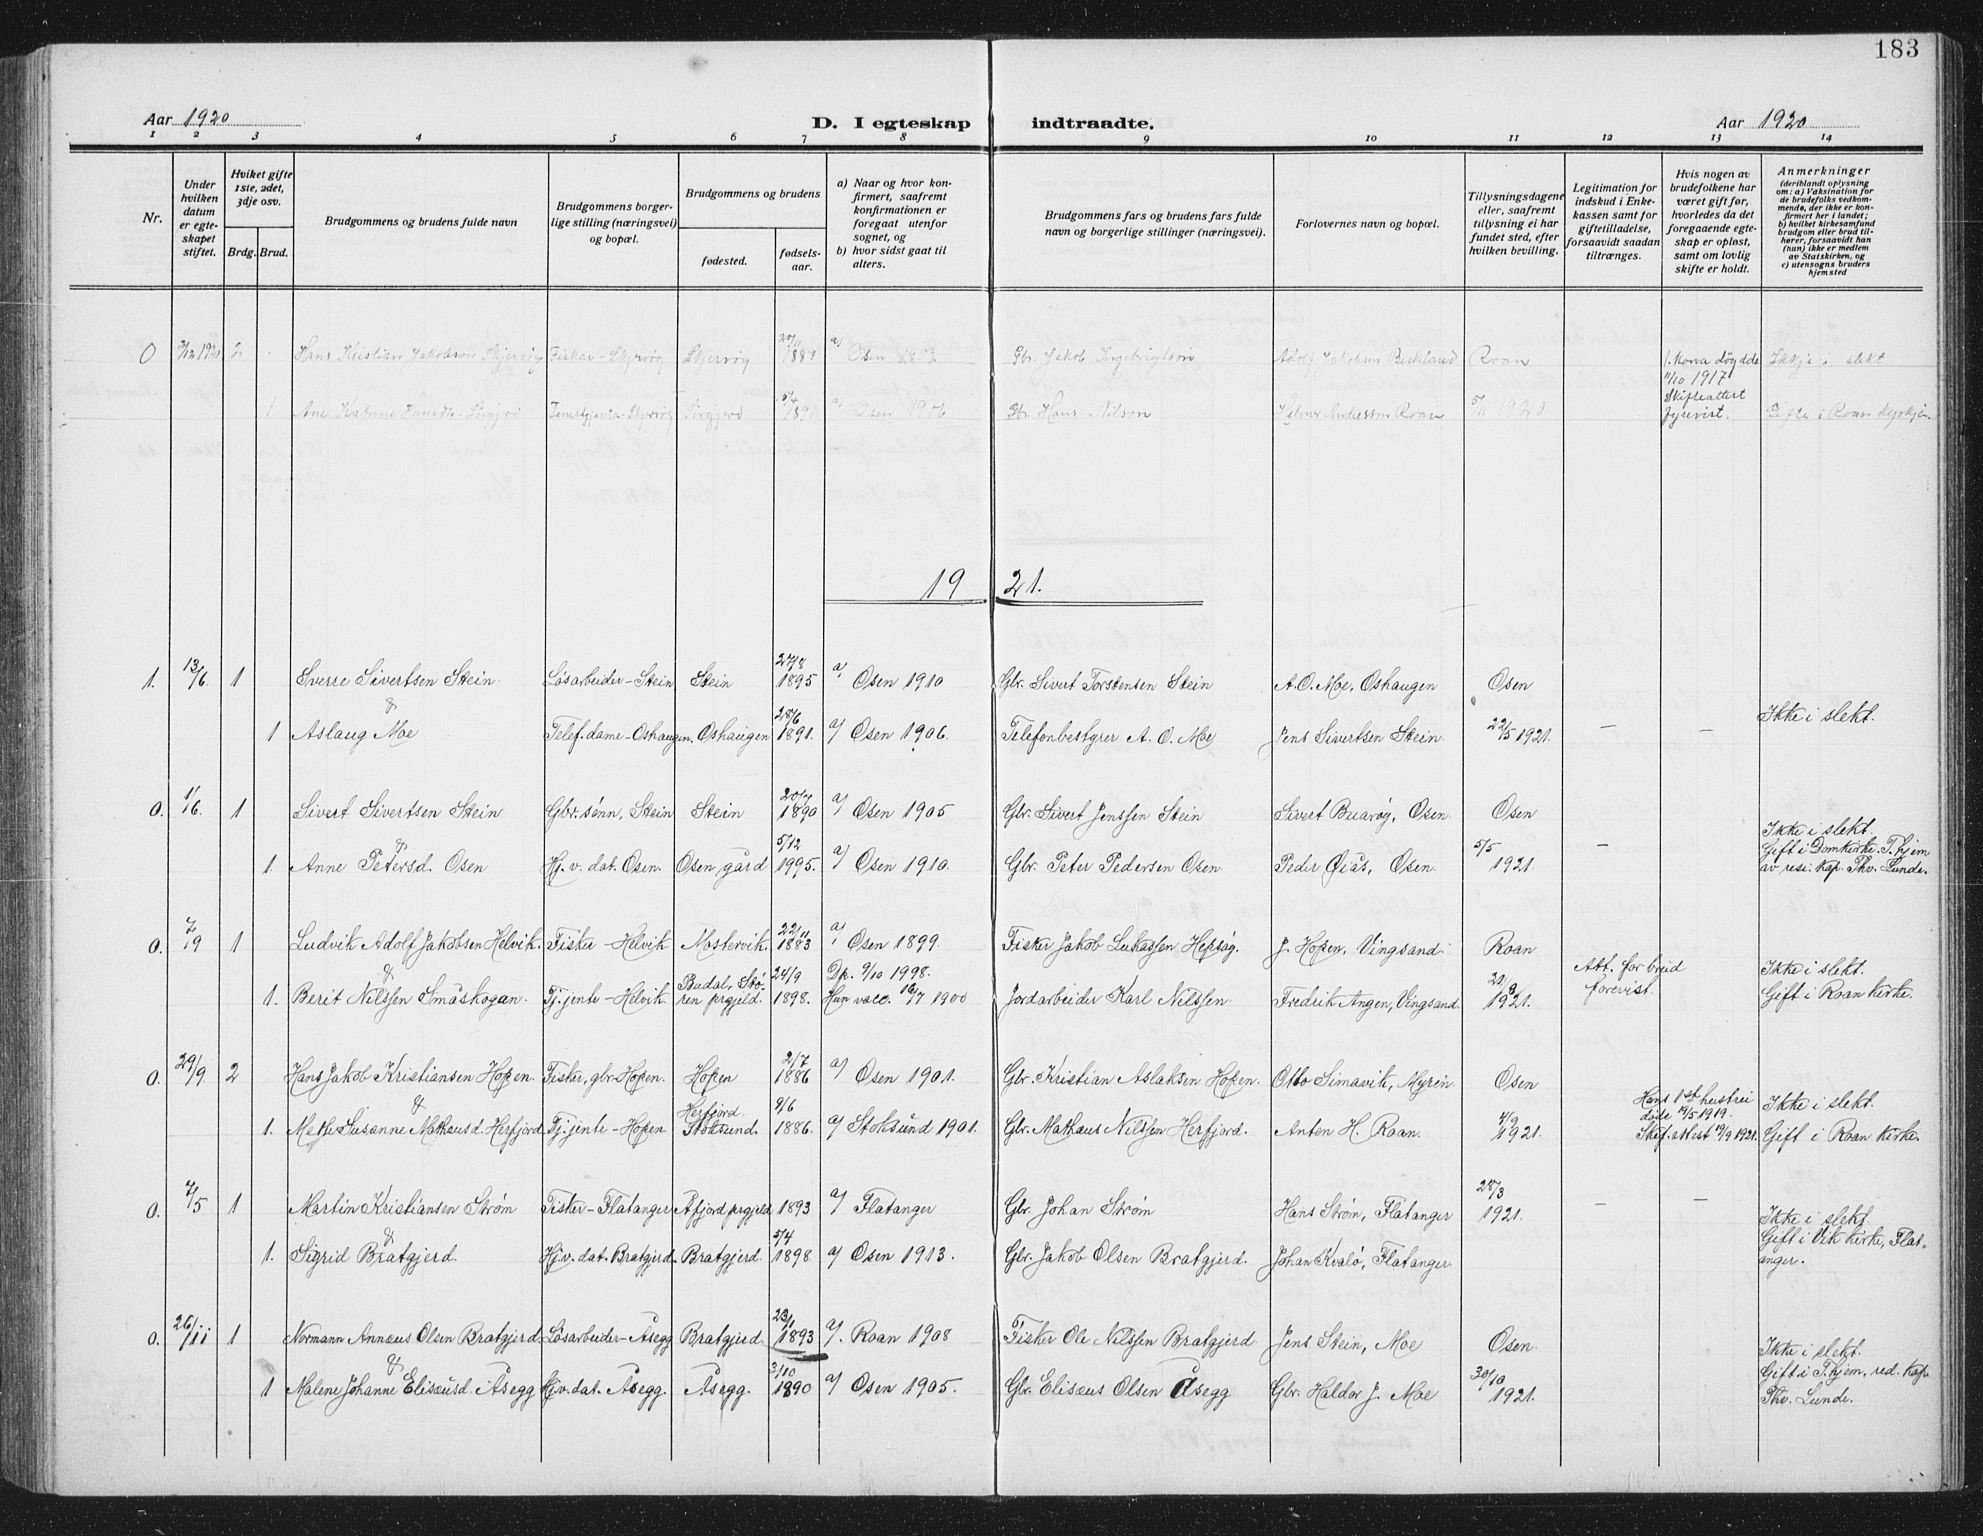 183
Aar 1920
D. I egteskap indtraadte.
Aar 1920
1 2 3 4 5 6 7 8 9 10 11 12 13 14
Nr.
Under hvilken datum er egteskapet stiftet.
Hviket gifte 1ste, 2det, 3dje osv.
Brdg. Brud.
Brudgommens og brudens fulde navn
Brudgommens borgerlige stilling (næringsvei) og bopæl.
Brudgommens og brudens
fødested.
fødselsaar.
a) Naar og hvor konfirmert, saafremt konfirmationen er foregaat utenfor sognet, og
b) hvor sidst gaat til alters.
Brudgommens fars og brudens fars fulde navn og borgerlige stillinger (næringsvei).
Forlovernes navn og bopæl.
Tillysningsdagene eller, saafremt tillysning ei har fundet sted, efter hvilken bevilling.
Legitimation for indskud i Enkekassen samt for giftetilladelse, forsaavidt saadan tiltrænges.
Hvis nogen av brudefolkene har været gift før, hvorledes da det foregaaende egteskap er opløst, samt om lovlig skifte er holdt.
Anmerkninger (deriblandt oplysning om: a) Vaksination for de brudefolks vedkommende, der ikke er konfirmert her i landet; b) hvilket kirkesamfund brudgom eller brud tilhører, forsaavidt han (hun) ikke er medlem av Statskirken, og c) utensogns bruders hjemsted
0 2 Hans Kristian Jakobsen Skjervøy Fiskar - Skjervøy Skjervøy 20/11 1887 a) Osen Gbr. Jakob Ingebrigtson Adolf Jakobsen Roan 1. kona døydde 11/10 1917 Ikkje i slekt
1 Ane Katrine Hansdtr. Tenestjenta 1891 a) Osen Gbr. Hans Nilson Helmer Anderssen Roan 5/11 1920 Skifteattest fyrevist. Gifte i Roan kyrkje
1921.
1. 13/6 1 Sverre Sivertsen Stein Løsarbeider - Stein Stein 27/8 1895 a) Osen 1910 Gbr. Sivert Torstensen Stein A. O. Moe, Oshaugen Osen
&
1 Aslaug Moe Telef. dame - Oshaugen. Oshaugen 28/6 1891. a) Osen 1906. Telefonbestyrer A. O. Moe Jens Sivertsen Stein. 22/5 1921. — — Ikke i slekt.
0. 1/6 1 Sivert Sivertsen Stein Gbr. sønn, Stein Stein 20/7 1890 a) Osen 1905 Gbr. Sivert Jenssen Stein Sivert Buarøy, Osen. Osen
&
1. Anne Petersd. Osen Hj. v. dat. Osen. Osen gård 5/12 1995. a) Osen 1910. Gbr. Peter Pedersen Osen. Peder Øiås, Osen. 5/5 1921. — Ikke i slekt. Gift i Domkirke. T.hjem av resi. kap. Thv. Lunde.
0. 7/9 1 Ludvik Adolf Jakobsen Helvik. Fisker - Helvik Mostervik. 22/11 1883 a) Osen 1899. Fisker Jakob Lukassen Hepsøy. J. Hopen, Vingsand. Roan
&
1. Berit Nilssen Småskogan. Tj.jente - Helvik. Budal, Støren prgjeld. 24/9 1898. Dp. 9/10 1998. Hun vacc. 16/7 1900 Jordarbeider Karl Nilssen. Fredrik Angen, Vingsand. 21/8 1921. Att. for brud forevist. Ikke i slekt. Gift i Roan kirke.
0. 29/9 2 Hans Jakob Kristiansen Hopen. Fisker, gbr. Hopen. Hopen 2/7 1886 a) Osen 1901. Gbr. Kristian Aslaksen Hopen. Otto Simavik, Myren. Osen
&
1. Mette Susanne Mathæusd. Herfjord. Tj.jente - Hopen. Herfjord. Stoksund. 9/6 1886. a) Stoksund 1901. Gbr. Mathæus Nilssen Herfjord. Anten H. Roan. 4/9 1921. Hans 1ste hustrei døde 14/5 1919. Skif. attest 19/9 1921. Ikke i slekt. Gift i Roan kirke.
0. 7/5 1 Martin Kristiansen Strøm Fisker - Flatanger Åfjord prgjeld 1893 a) Flatanger Gbr. Johan Strøm Hans Strøm, Flatanger 28/3 1921. — —
&
1. Sigrid Bratgjerd. Hj.v. dat. Bratgjerd. Bratgjerd. 5/4 1898. a) Osen 1913. Gbr. Jakob Olsen Bratgjerd. Johan Kvalø, Flatanger. Ikke i slekt. Gift i Vik kirke, Flatanger.
0. 26/11 1 Normann Annæus Olsen Bratgjerd Løsarbeider - Åsegg Bratgjerd. 23/1 1893 a) Roan 1908 Fisker Ole Nilssen Bratgjerd Jens Stein, Moe Osen.
&
1 Malene Johanne Elisæusd. Åsegg Hj.v. dat. Åsegg. Åsegg. 3/10 1890 a) Osen 1905. Gbr. Elisæus Olsen Åsegg Gbr. Haldor J. Moe 30/10 1921. Ikke i slekt. Gift i T.hjem, red. kap. Thv. Lunde.